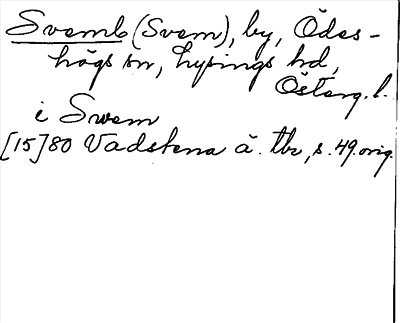 Svemb (Svem), by, Ödes-
högs sn, Lysings hd,
Österg. l.
i Swem
[15]80 Vadstena ä. tb, s. 49. orig.